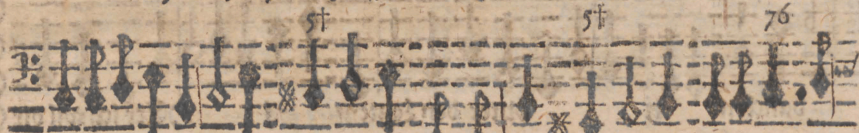 5† 5‡ 76